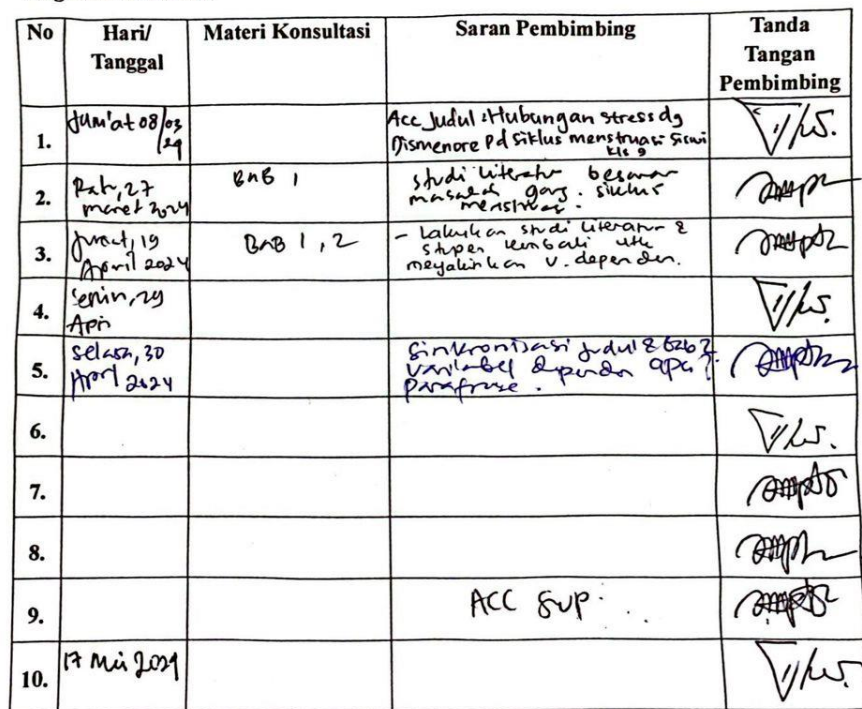 No
Hari/
Tanggal
Materi Konsultasi
Saran Pembimbing
Tanda
Tangan
Pembimbing
1.
Jum'at 08/03
24
Acc Judul : Hubungan stress dg
Dismenore Pd siklus menstruasi siswi
kls 9
2.
27
maret 2024
BAB 1
studi literatur besaran
masalah siklus
3.
Jumat, 19
April 2024
BAB 1, 2
- Lakukan studi literatur &
stupen kembali utk
meyakinkan v. dependen.
4.
Senin, 29
5.
Selasa, 30
April 2024
Sinkronisasi judul & bab 2
variabel dependen apa?
parafrase.
6.
7.
8.
9.
ACC
10.
17 Mei 2024